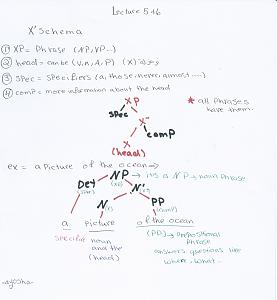 Lecture 5+6
X' Schema
① XP = Phrase (NP, VP...)
② head = can be (V, N, A, P) (X)
③ Spec = Specifiers (a, those, never, almost.....)
④ comp = more information about the head
XP
Spec X'
X comp
(head)
* all Phrases
have them.
ex = a Picture of the ocean →
Det NP → its a NP → noun Phrase
(spec) (XP) N'
N PP
(comp)
a picture of the ocean
specifier noun (PP) → Prepositional
and the Phrase
(head) answers questions like
where, what..